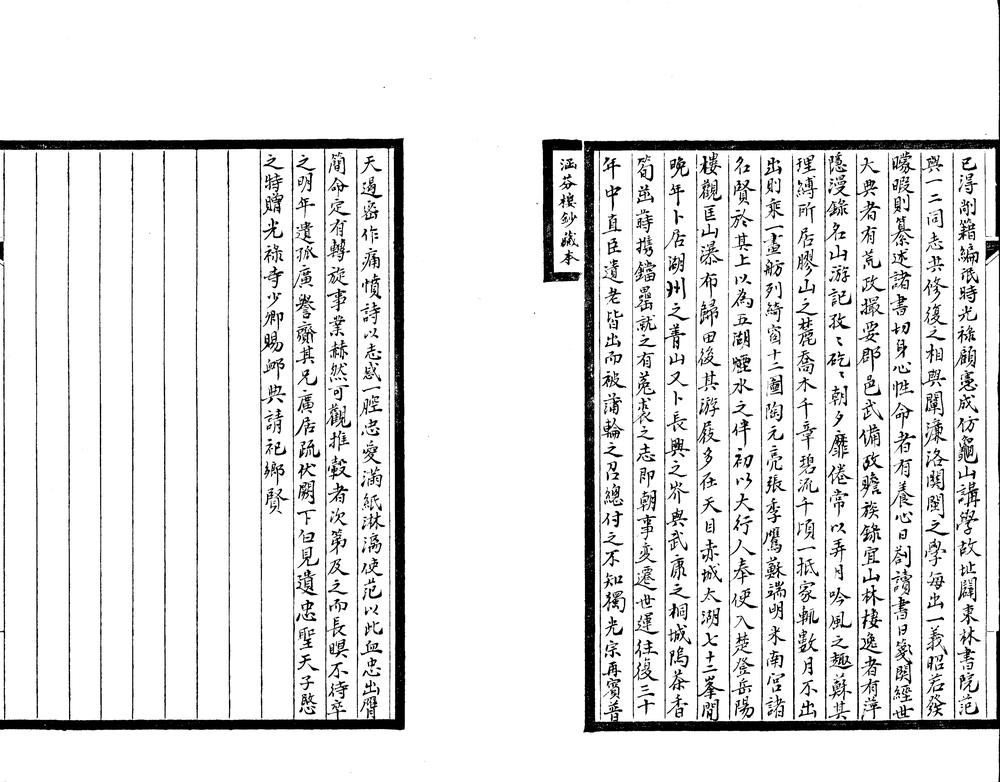 已得削籍編氓時光祿顧憲成仿龜山講學故址闢東林書院范
與一二同志共修復之相與闡濂洛関閩之學每出一義昭若發
曚暇則纂述諸書切身心性命者有養心日劄讀書日箋関經世
大典者有荒政撮要郡邑武備政贍族錄宜山林棲逸者有萍
隱漫錄名山游記孜〻矻〻朝夕靡倦常以弄月吟風之趣蘇其
理縛所居膠山之麓喬木千章碧流千頃一抵家輒數月不出
出則乘一畫舫列綺窗十二圖陶元亮張季鷹蘇端明米南宮諸
名賢於其上以為五湖煙水之伴初以大行人奉使入楚登岳陽
樓觀匡山瀑布歸田後其游屐多在天目赤城太湖七十二峯間
晩年卜居湖州之菁山又卜長興之岕與武康之桐城塢茶香
筍茁蒔携鐺罍就之有菟裘之志即朝事変遷世運往復三十
年中直臣遺老皆出而被蒲輪之召總付之不知獨光宗再賓普
涵芬樓鈔藏本
天遏密作痛憤詩以志感一腔忠愛滿紙淋漓使范以此血忠出膺
簡命定有轉旋事業赫然可觀推轂者次第及之而長暝不待卒
之明年遺孤廣譽齎其兄廣居疏伏闕下白見遺忠聖天子愍
之特贈光祿寺少卿賜䘏典請祀鄉賢